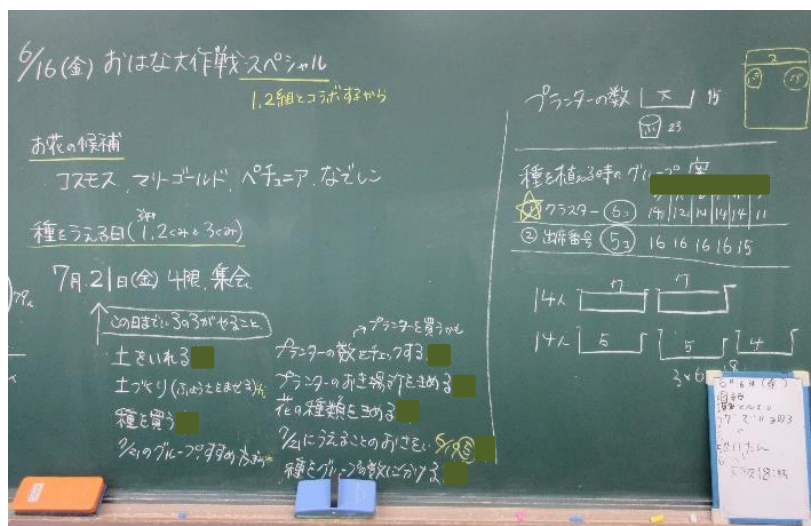 6/16(金) おはな大作戦スペシャル
1,2組とコラボするから
お花の候補
コスモス、マリーゴールド、ペチュニア、なでしこ
種をうえる日(1,2くみと3くみ)
7月21日(金) 4限 集会
この日までに3の3がやること
土をいれる
土づくり(ふようとをまぜる)
種を買う
7/21のグループ、すすめ方
プランターを買うかも
プランターの数をチェックする
プランターのおき場所をきめる
花の種類をきめる
7/21にうえることのおさそい
種をグループの数に分ける
プランターの数 大 15
23
種を植える時のグループ
① クラスター ⑥コ 14 12 14 14 11
② 出席番号 ⑤コ 16 16 16 16 15
14人 7 7
14人 5 5 4
3×6